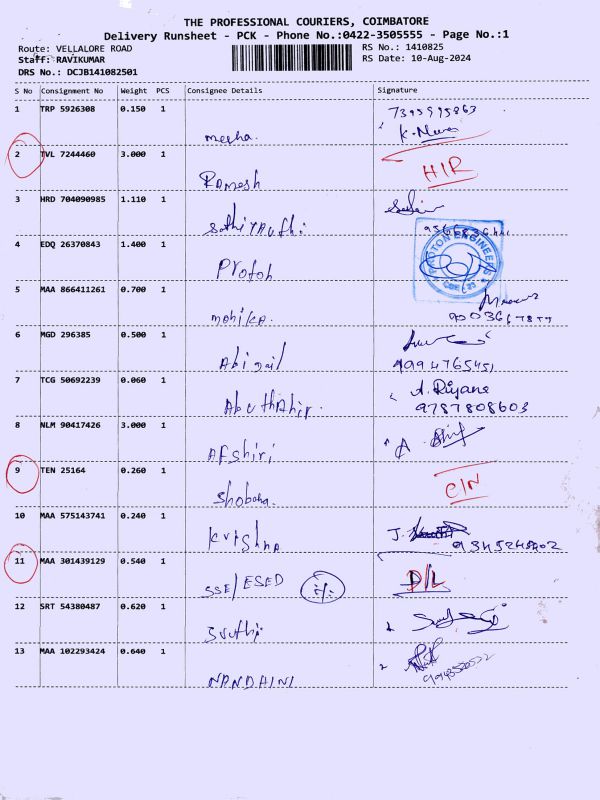 THE PROFESSIONAL COURIERS, COIMBATORE
Delivery Runsheet - PCK - Phone No.:0422-3505555 - Page No.:1
Route: VELLALORE ROAD RS No.: 1410825
Staff: RAVIKUMAR RS Date: 10-Aug-2024
DRS No.: DCJB141082501
S No Consignment No Weight PCS Consignee Details Signature
1 TRP 5926308 0.150 1
megha.
2 TVL 7244460 3.000 1
Ramesh H/R
3 HRD 704090985 1.110 1
4 EDQ 26370843 1.400 1
PROTON ENGINEERS
Proton
5 MAA 866411261 0.700 1
6 MGD 296385 0.500 1
Abigail 9994765451
7 TCG 50692239 0.060 1 A. Riyana
Abuthahir. 9787808603
8 NLM 90417426 3.000 1
Afshiri
9 TEN 25164 0.260 1
Shobana C/N
10 MAA 575143741 0.240 1
Krishna J.
11 MAA 301439129 0.540 1
SSE/ESED D/L
12 SRT 54380487 0.620 1
Sruthi
13 MAA 102293424 0.640 1
NANDHINI